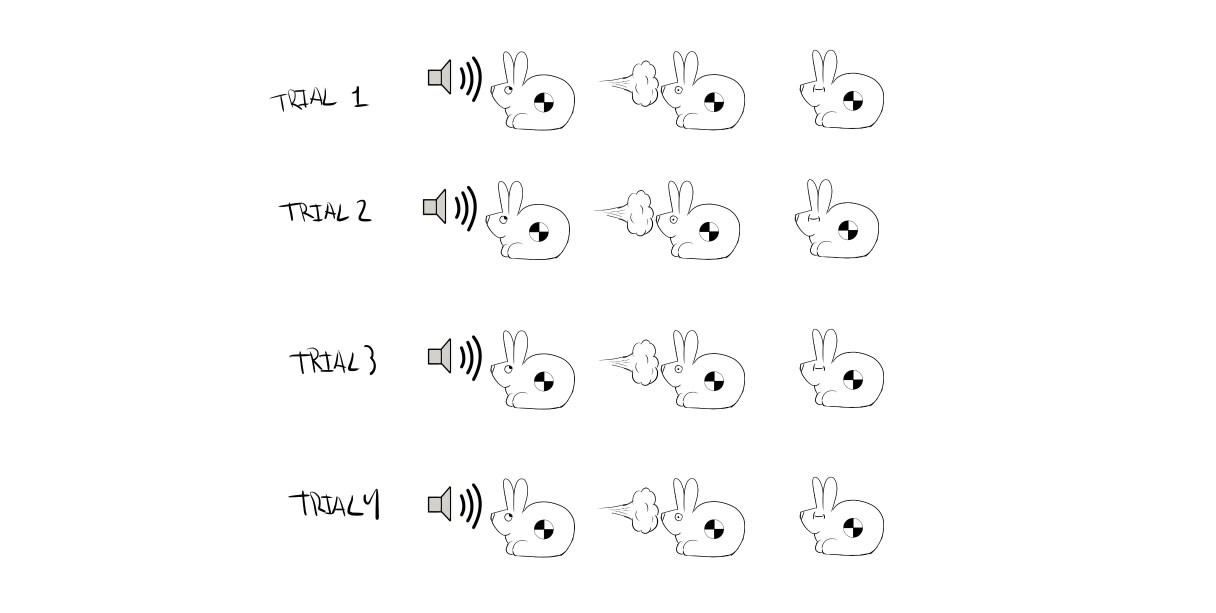 TRIAL 1
TRIAL 2
TRIAL 3
TRIAL 4